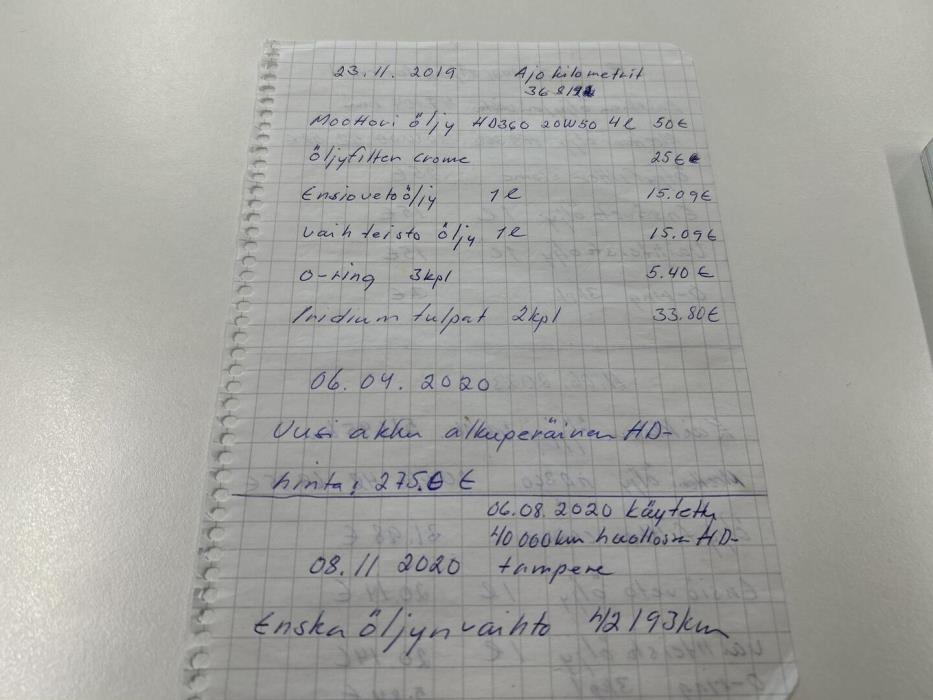 23.11. 2019 Ajokilometrit
Moottori öljy HD360 20W50 4l 50€
öljyfilter crome 25€
Ensiovetoöljy 1l 15.09€
vaihteisto öljy 1l 15.09€
O-ring 3kpl 5.40€
Iridium tulpat 2kpl 33.80€
06.04. 2020
Uusi akku alkuperäinen HD-
hinta: 275.€ €
06.08.2020 käytetty
40000km huollossa HD-
08.11 2020 tampere
Enska öljynvaihto 42193km